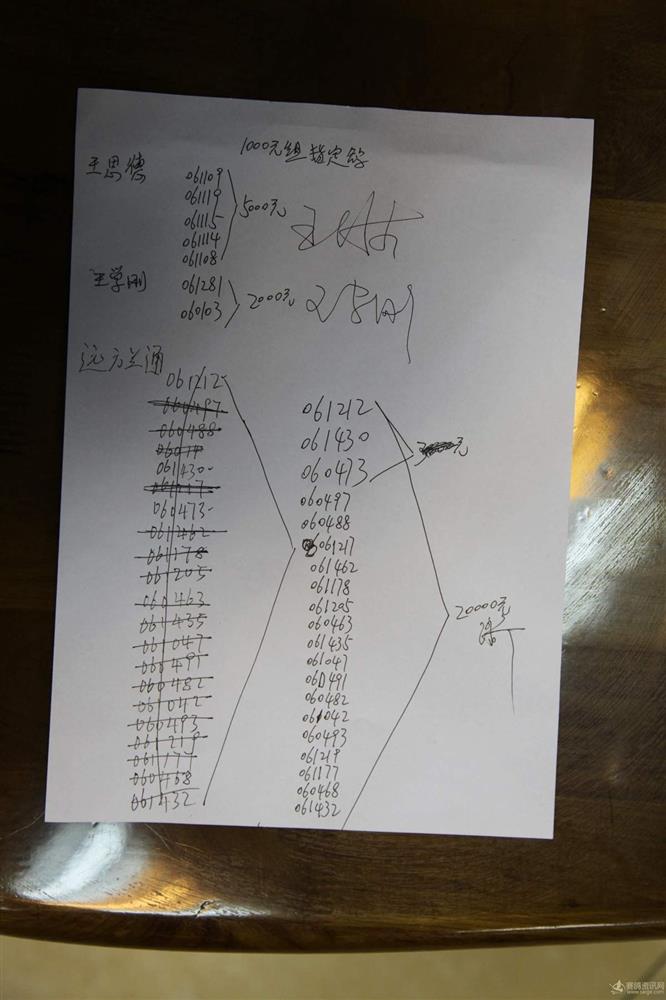 1000元组指定鸽
王思德
061109
061119
061115
061114
061108
5000元
王学刚
061281
060103
2000元
王学刚
远方兰通
061212
060497
060488
061430
061217
060473
061462
061178
061205
060463
061435
061047
060491
060482
061042
060493
061219
061177
060468
061432
061212
061430
060473
060497
060488
061217
061462
061178
061205
060463
061435
061047
060491
060482
061042
060493
061219
061177
060468
061432
20000元
赛鸽资讯网
www.saige.com